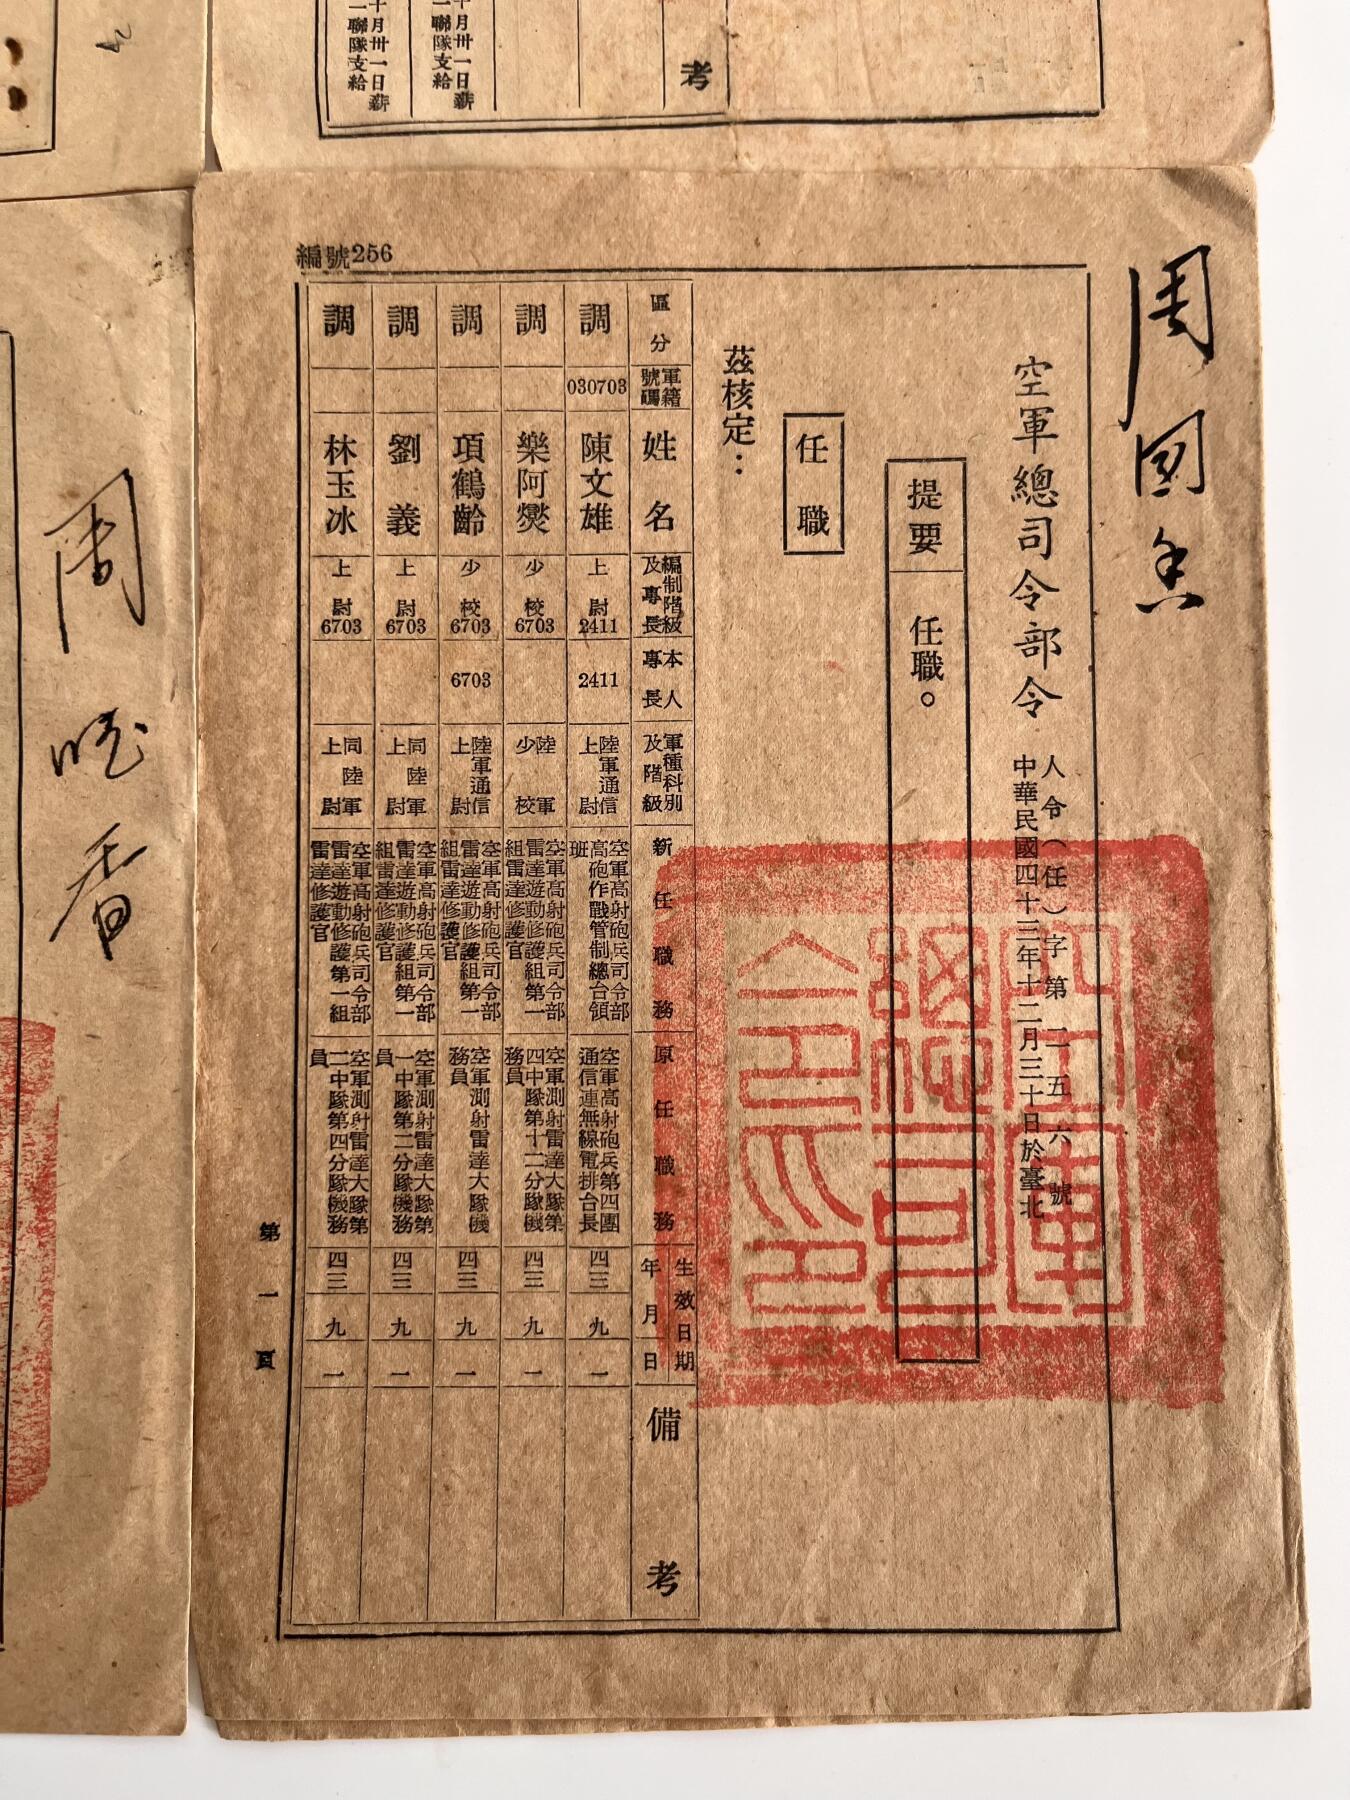 十月卅一日薪
一聯隊支給
十月卅一日薪
一聯隊支給
考
編號256
周國
空軍總司令部令
人令(任)字第二五六號
中華民國四十三年十二月三十日於臺北
提要 任職。
任職
茲核定：
區分 軍籍號碼 姓名 編制階級及專長 本人專長 軍種科別及階級 新任職務 原任職務 生效日期 年月日 備考
調 030703 陳文雄 上尉2411 2411 陸軍通信上尉 空軍高射砲兵司令部高砲作戰管制總台領班 空軍高射砲兵第四團通信連無線電排台長 四三 九 一
調 樂阿爕 少校6703 陸軍少校 空軍高射砲兵司令部雷達遊動修護組第一組雷達修護官 空軍測射雷達大隊第四中隊第十二分隊機務員 四三 九 一
調 項鶴齡 少校6703 6703 陸軍通信上尉 空軍高射砲兵司令部雷達遊動修護組第一組雷達修護官 空軍測射雷達大隊機務員 四三 九 一
調 劉義 上尉6703 同陸軍上尉 空軍高射砲兵司令部雷達遊動修護組第一組雷達修護官 空軍測射雷達大隊第一中隊第二分隊機務員 四三 九 一
調 林玉冰 上尉6703 同陸軍上尉 空軍高射砲兵司令部雷達遊動修護第一組雷達修護官 空軍測射雷達大隊第二中隊第四分隊機務員 四三 九 一
第一頁
空軍總司令印
周曉香